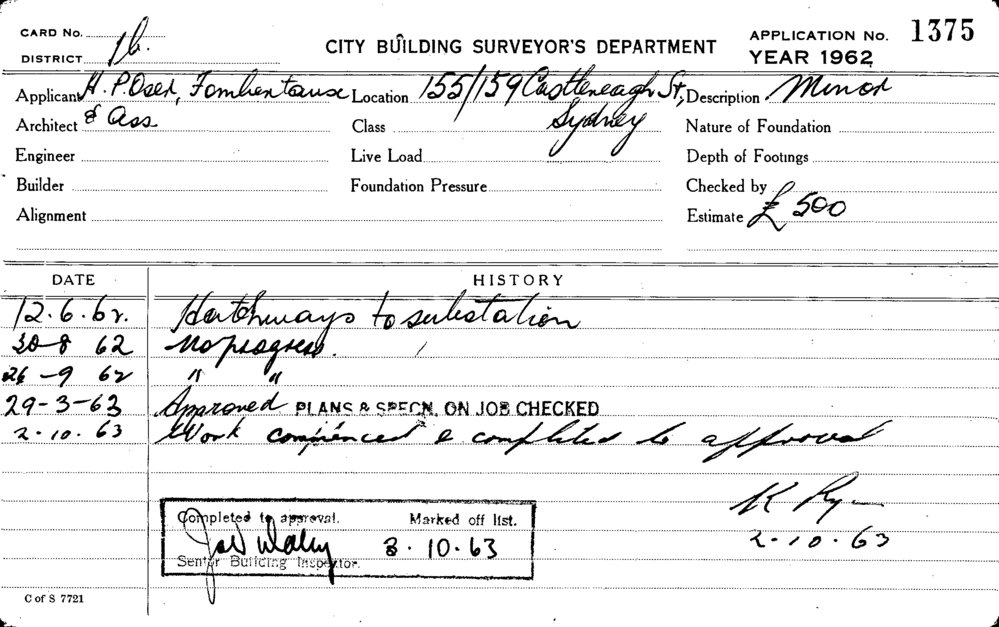 CARD No.
DISTRICT 1b.
CITY BUILDING SURVEYOR'S DEPARTMENT
APPLICATION No. 1375
YEAR 1962
Applicant H. P Oser, Fombertaux Location 155/159 Castlereagh St, Description Minor
Architect & Ass Class Sydney Nature of Foundation
Engineer Live Load Depth of Footings
Builder Foundation Pressure Checked by
Alignment Estimate £ 500
DATE HISTORY
12.6.62. Hatchways to substation
30-8 62 No progress.
26-9 62 " "
29-3-63 Approved PLANS & SPECN. ON JOB CHECKED
2.10.63 Work commenced & completed to approval
K Ryan
2.10.63
Completed to approval. Marked off list.
3.10.63
Senior Building Inspector.
C of S 7721